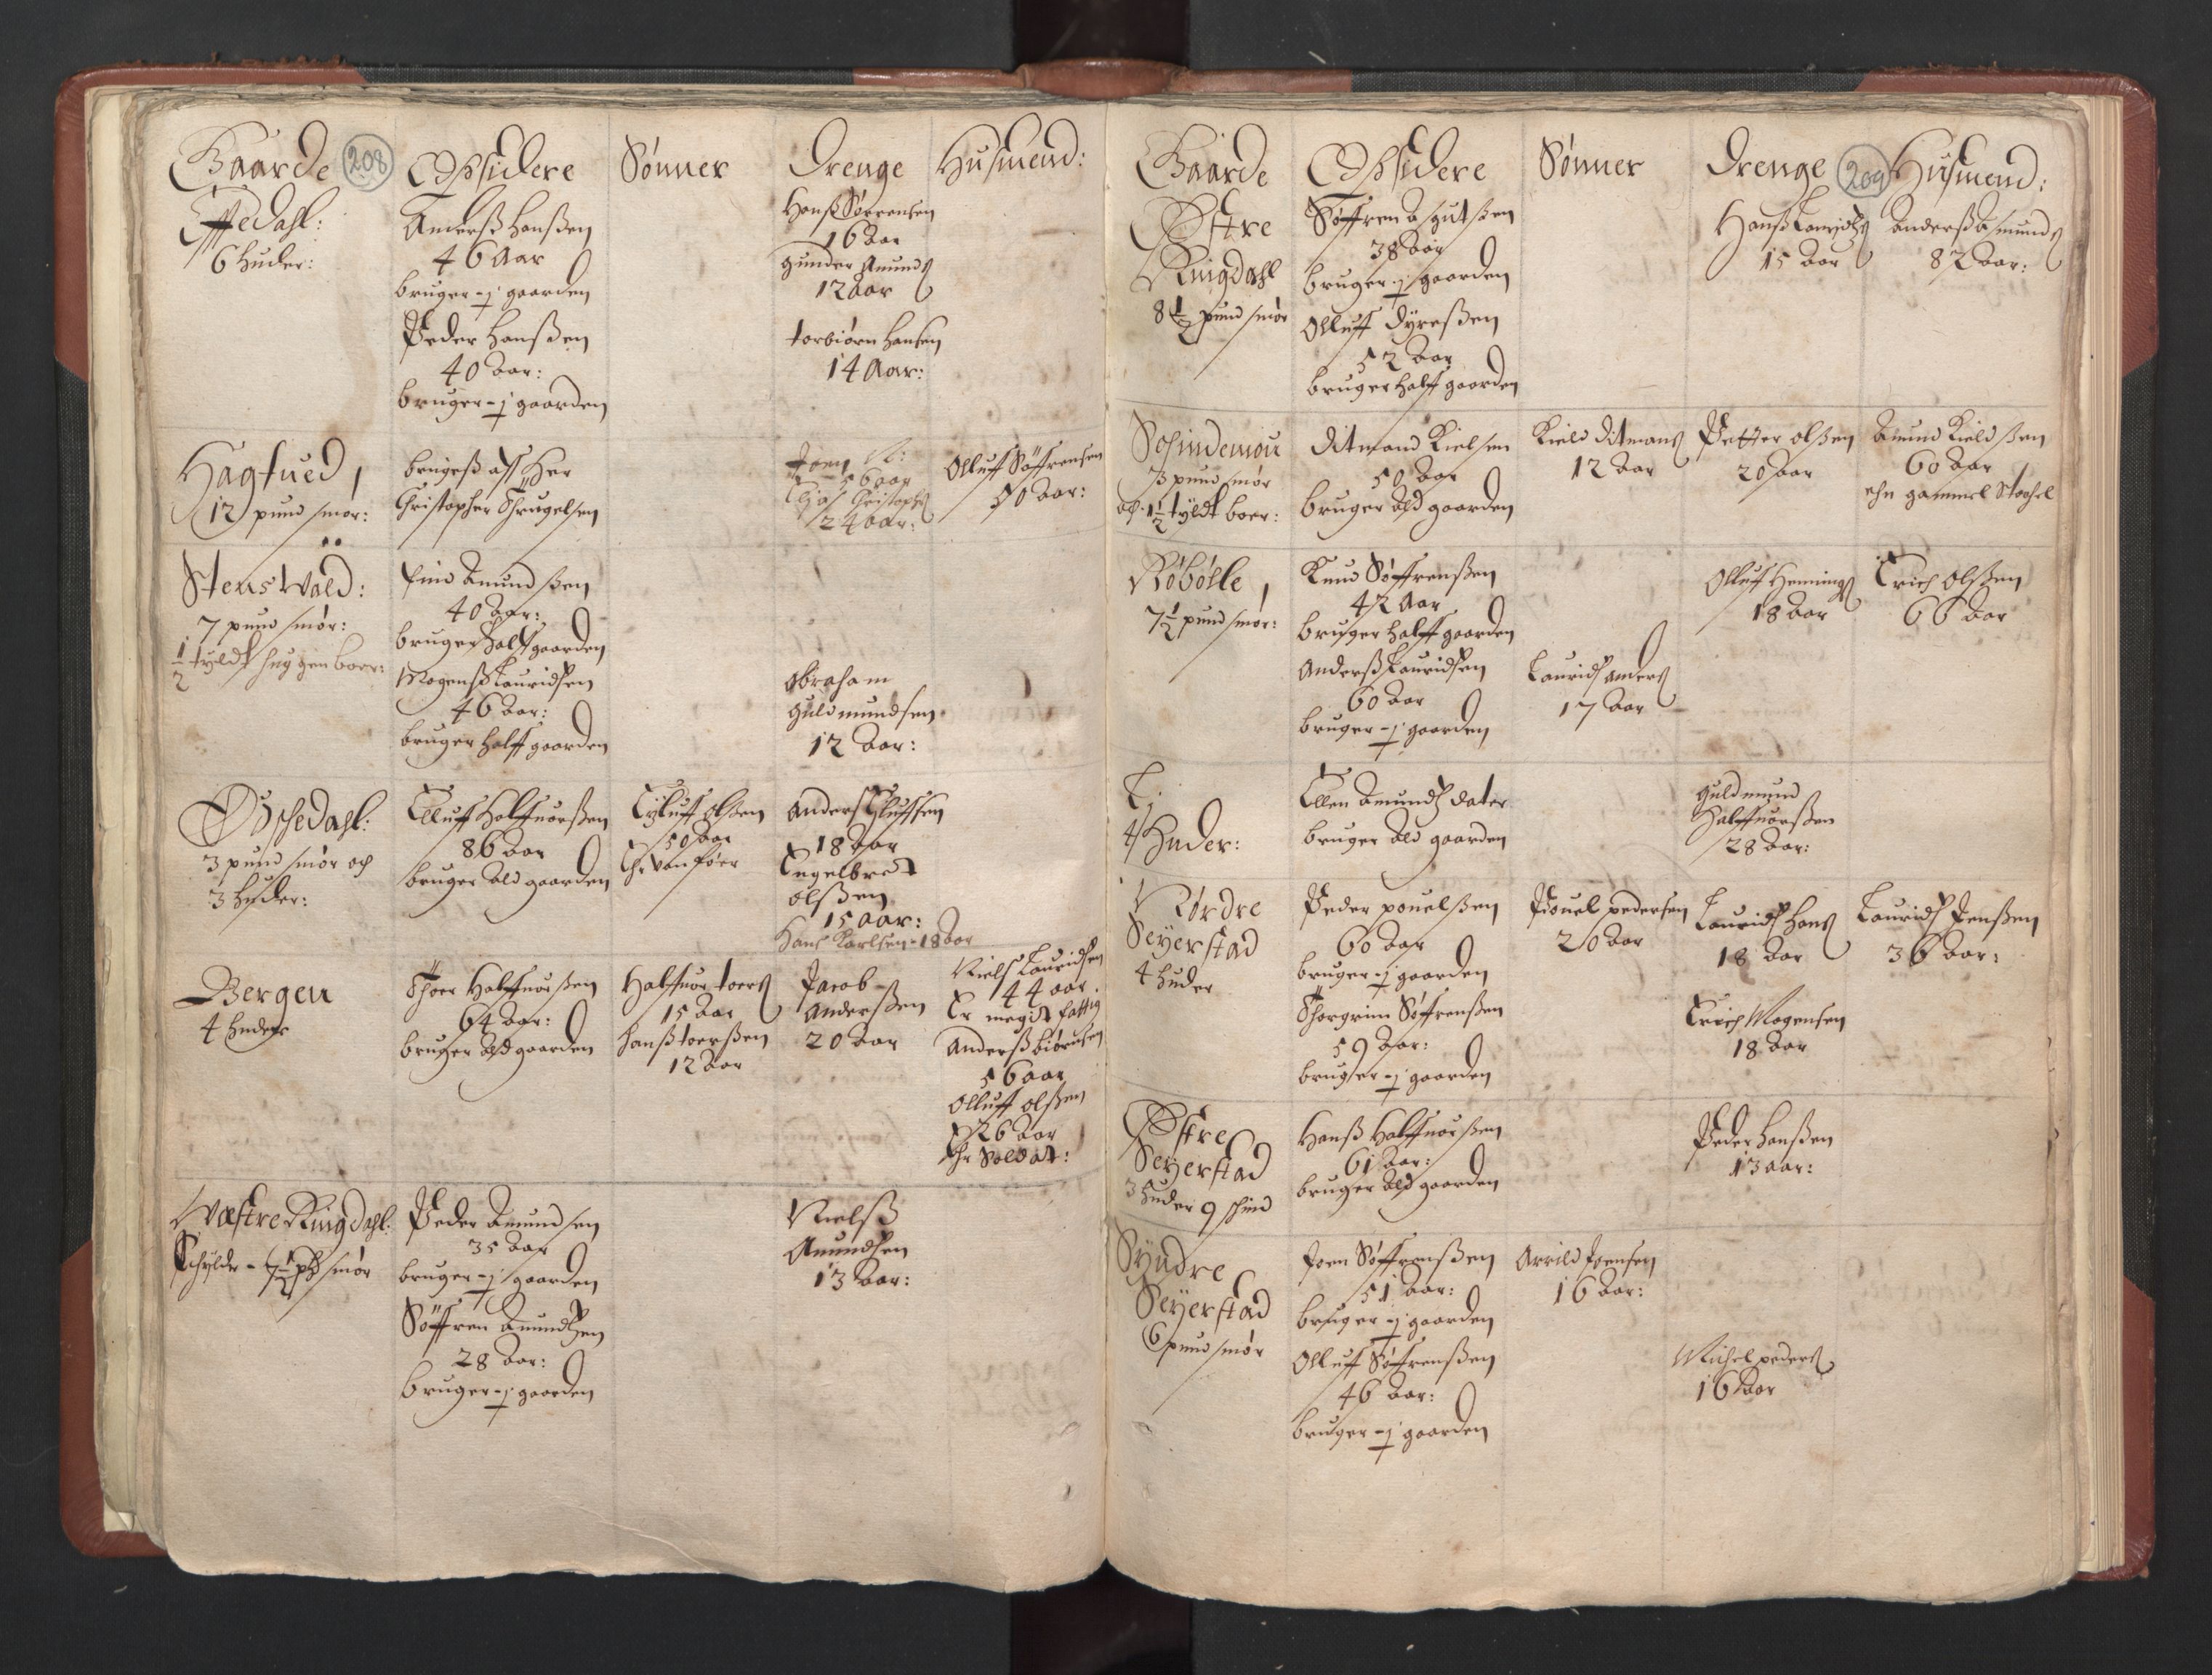 Gaarde
208
Opsidere
Sønner
Drenge
Husmend:
Effedahl:
6 huder:
Anderß Hanßen
46 Aar
bruger ½ gaarden
Peder Hanßen
40 Aar:
bruger ½ gaarden
Hanß Sørrensen
16 Aar
Gunder Amunds
12 Aar
torbiørn Hansen
14 Aar:
Hagtued,
12 pund smør:
brugeß aff Her
Christopher Thrugelsen
56 aar
Elias Christophs
24 aar:
Olluff Søffrensen
50 Aar:
Stenswald:
7 pund smør:
½ tyldt huggen boer:
Find Amundßen
40 Aar:
bruger halff gaarden
Mogenß Lauridsen
46 Aar:
bruger halff gaarden
Abraham
Guldmundsen
12 Aar:
3 pund smør och
3 huder:
Elluff Halffuorßen
86 Aar
bruger ald gaarden
Eyluff Olßen
50 Aar
Ehr vanfør
Anders Eyluffsen
18 Aar
Engelbret
Olßen
15 Aar:
Hans Karlsen - 18 Aar
Bergen
4 huder
Thoer Halffuorßen
64 Aar:
bruger ald gaarden
Halfuor toers
15 Aar
Hanß toerßen
12 Aar
Jacob
Anderßen
20 Aar
Niels Lauridsen
44 aar.
Er meget fattig
Anderß biørnsen
56 aar
Olluff Olßen
26 Aar
Ehr Soldat:
Wæstre Ringdahl:
Schylder - 7½ pd smør
Peder Amundsen
35 Aar
bruger ½ gaarden
Søffren Amundsen
28 Aar:
bruger ½ gaarden
Nielß
Amundsen
13 Aar:
Gaarde
Opsidere
Sønner
Drenge
209
Husmend:
Østre
Ringdahl
8½ pund smør
Søffren Asgutßen
38 Aar
bruger ½ gaarden
Olluff Dyreßen
52 Aar
bruger halff gaarden
Hanß Lauridts
15 Aar
Anderß Asmunds
82 Aar:
Schindemou
3 pund smør
och 1½ tyldt boer:
Ditmand Kielsen
50 Aar
bruger ald gaarden
Kield Ditmans
12 Aar
Petter Olßen
20 Aar
Amund Kieldßen
60 Aar
ehn gammel Stachel
Røbølle,
7½ pund smør:
Knud Søffrenßen
42 Aar
bruger halff gaarden
Anderß Lauridsen
60 Aar
bruger ½ gaarden
Laurids Anders
17 Aar
Olluff Hennings
18 Aar
Erich Olßen
66 Aar
4 Huder:
Ellen Amunds dater
bruger ald gaarden
Guldmund
Halffuorßen
28 Aar:
Nørdre
Seyerstad
4 huder
Peder Pouelßen
60 Aar
bruger ½ gaarden
Thorgrim Søffrenßen
59 Aar:
bruger ½ gaarden
Pouel Pedersen
20 Aar
Laurids Hans
18 Aar
Erich Mogensen
18 Aar
Laurids Jenßen
36 Aar:
Østre
Seyerstad
3 huder 9 schind
Hanß Halffuorßen
61 Aar:
bruger ald gaarden
Peder Hanßen
13 aar:
Syndre
Seyerstad
6 pund smør
Joen Søffrenßen
51 Aar:
bruger ½ gaarden
Olluff Søffrenßen
46 Aar:
bruger ½ gaarden
Arrild Joensen
16 Aar:
Michel Peders
16 Aar